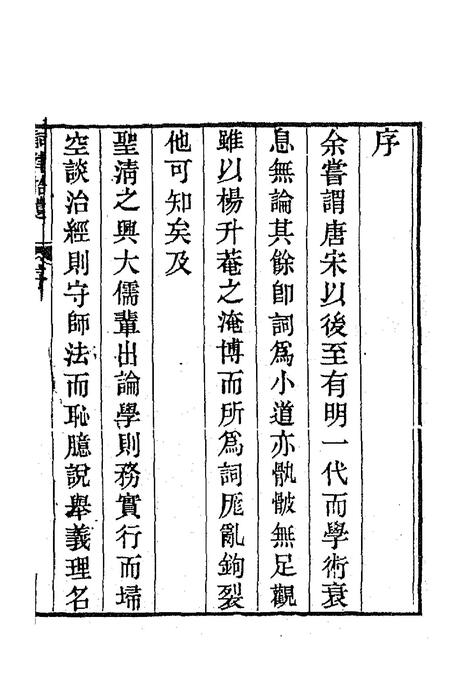 序
余嘗謂唐宋以後至有明一代而學術衰
息無論其餘卽詞爲小道亦骩骳無足觀
雖以楊升菴之淹博而所爲詞厖亂鉤裂
他可知矣及
聖清之興大儒輩出論學則務實行而埽
空談治經則守師法而恥臆說舉義理名
詞律拾遺